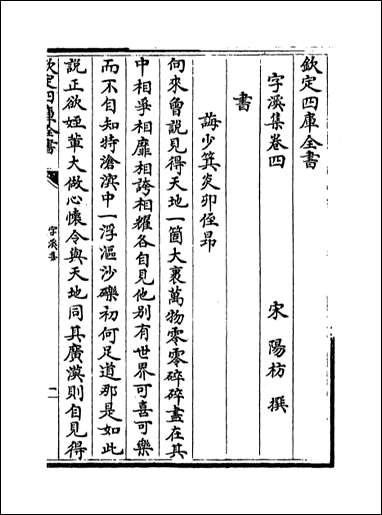 欽定四庫全書
字溪集卷四
宋 陽枋 撰
書
誨少箕炎卯侄昻
向來曾說見得天地一箇大裹萬物零零碎碎盡在其
中相爭相靡相誇相耀各自見他别有世界可喜可樂
而不自知特滄溟中一浮漚沙礫初何足道那是如此
說正欲姪輩大做心懷令與天地同其廣漠則自見得
欽定四庫全書
字溪集